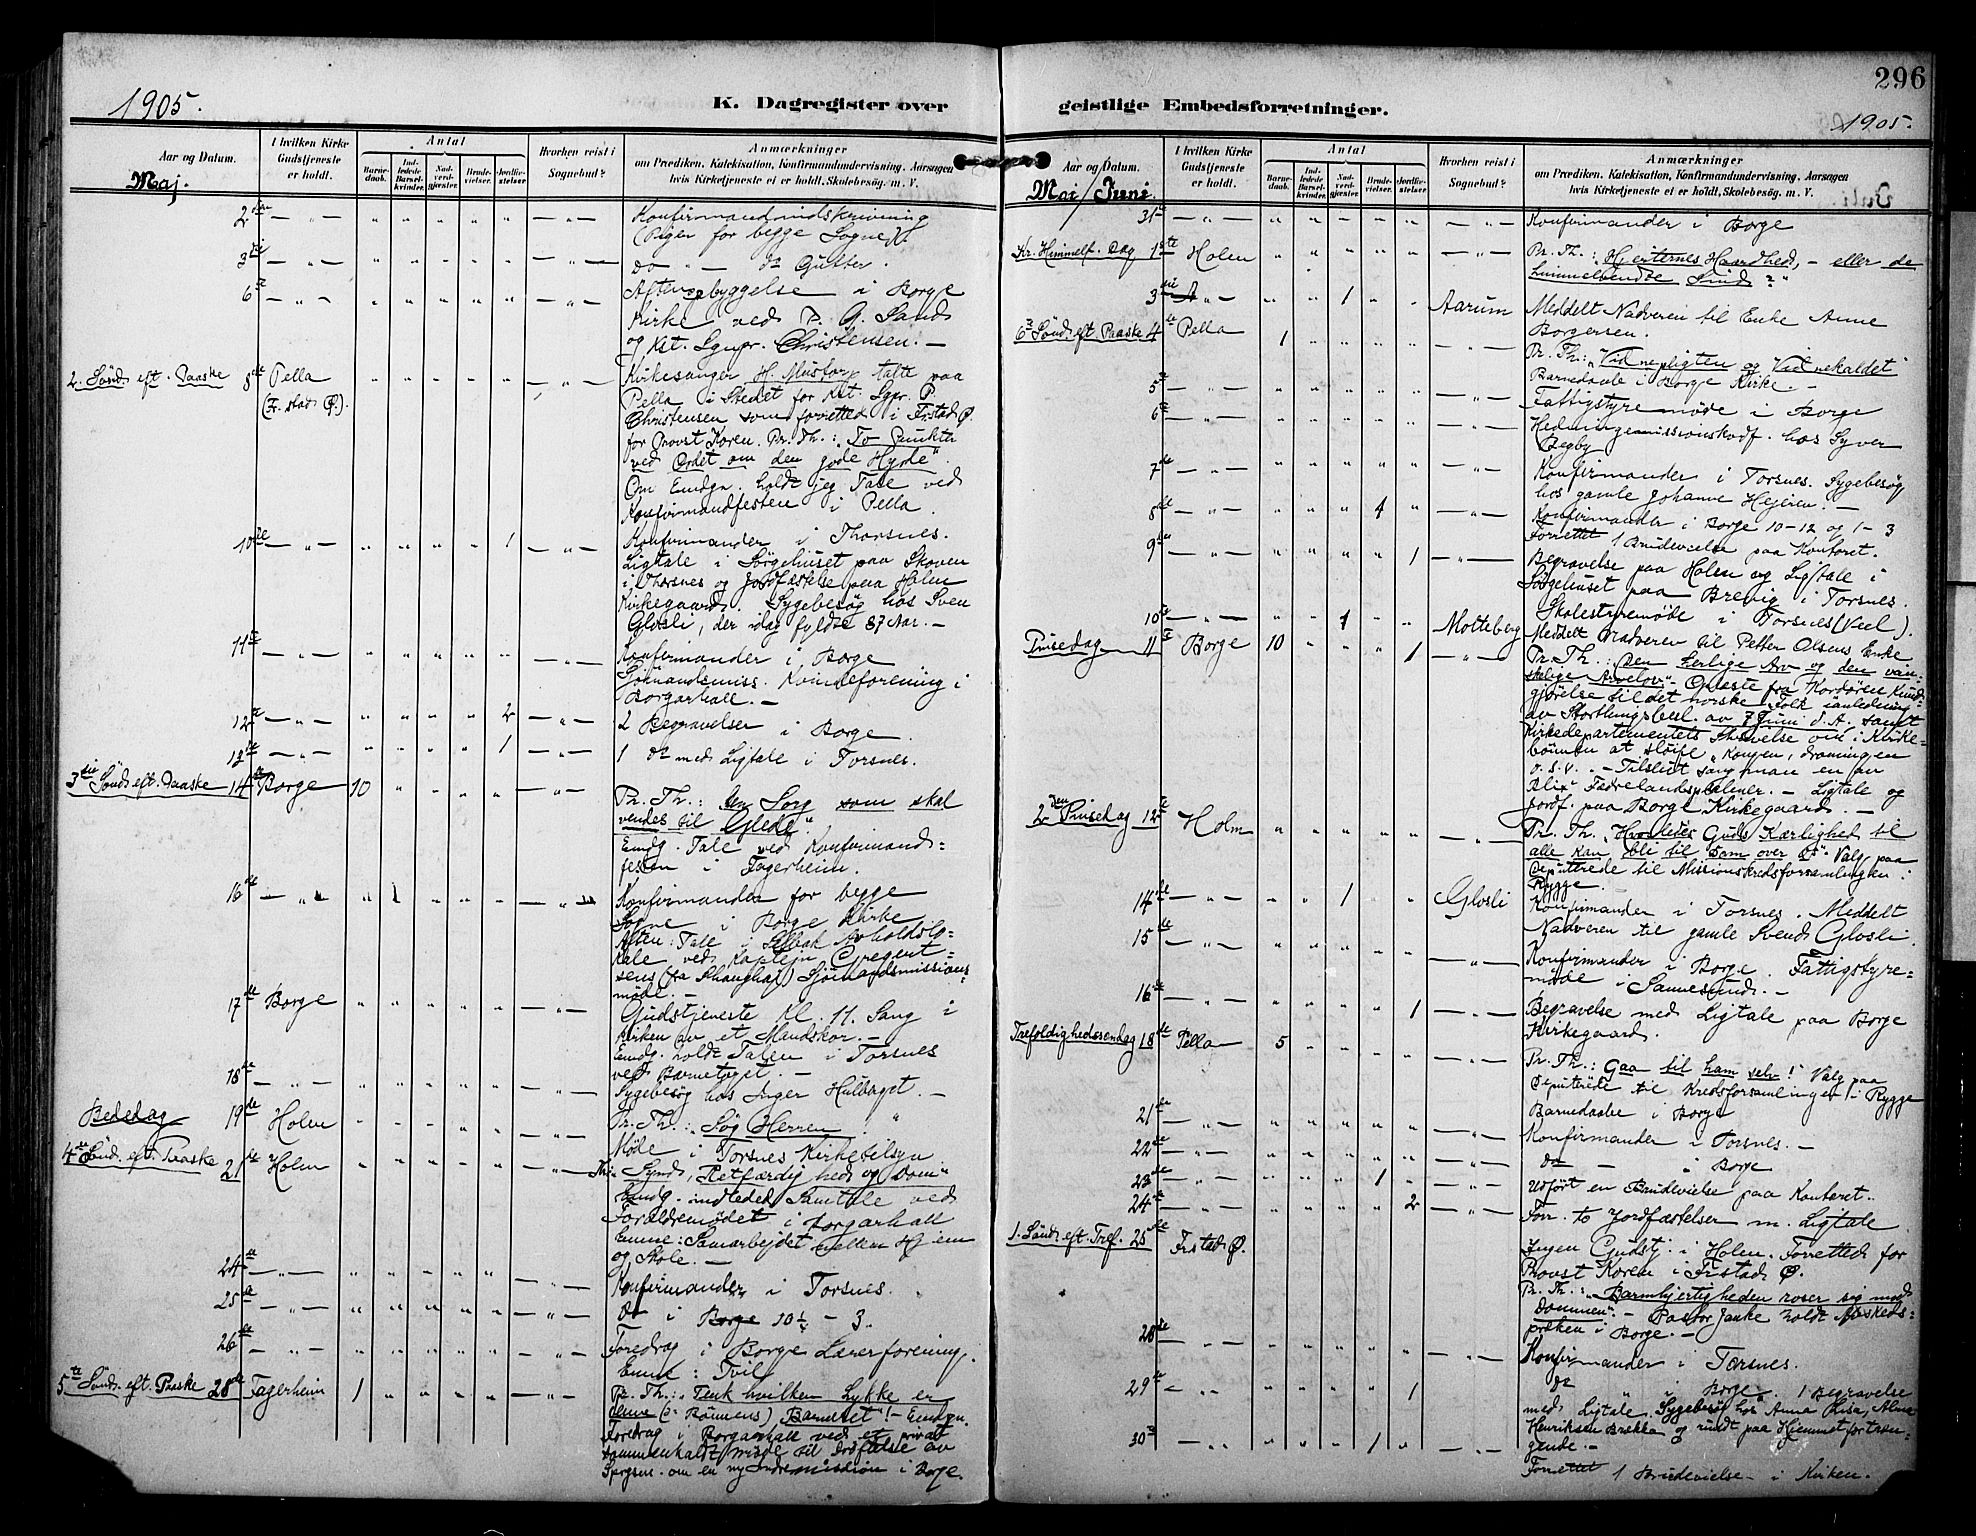 296
1905.
K. Dagregister over
geistlige Embedsforretninger.
1905.
Aar og Datum.
I hvilken Kirke Gudstjeneste er holdt.
Antal
Barnedaab.
Indledede Barselkvinder.
Nadverdgjæster.
Brudevielser.
Jordfæstelser
Hvorhen reist i Sognebud?
Anmærkninger
om Prædiken, Katekisation, Konfirmandundervisning, Aarsagen
hvis Kirketjeneste ei er holdt, Skolebesøg, m. V.
Maj.
2 den Konfirmandindskrivning
(Piger for begge Sogne).
3 die do — do Gutter.
6 te Aftenopbyggelse i Borge
Kirke ved P. G. Sand
og Kst. Sgnpr. Christensen. —
2. Sönd. eft. Paaske 8de Pella
(Fr.stad Ø).
Kirkesanger H. Mustorp talte paa
Pella i Stedet for Kst. Sgpr. P.
Christensen som forrettede i Frstad Ø.
for Provst Koren. Pr. Th.: "To Punkter
ved Ordet om den gode Hyrde".
Om Emdgn. holdt jeg Tale ved
Konfirmandfesten i Pella.
10de 1 Konfirmander i Thorsnes.
Ligtale i Sørgehuset paa Skoven
i Thorsnes og Jordfæstelse paa Holen
Kirkegaard. Sygebesøg hos Sven
Glosli, der idag fyldte 87 Aar. —
11te Konfirmander i Borge
Sömandsmiss. Kvindeforening i
Borgarhall. —
12te 2 2 Begravelser i Borge.
13de 1 1 do med Ligtale i Torsnes.
3die Sönd. eft. Paaske 14de Borge 10
Pr. Th.: Den Sorg som skal
vendes til Glede".
Emdg. Tale ved Konfirmand-
festen i Fagerheim.
16de Konfirmander for begge
Sogne i Borge Kirke
Aften: Tale i Selbak Avholdslo-
kale ved Kaptejn Gregert-
sens (fra Shanghai) Sjömandsmissions
møde. —
17de Borge Gudstjeneste Kl. 11. Sang i
Kirken av et Mandskor. —
Emdg. holdt Talen i Torsnes
ved Barnetoget. —
18de Sygebesøg hos Inger Hulbaget. —
Bededag 19de Holen Pr. Th.: "Søg Herren".
Møde i Torsnes Kirketilsyn
4de Sönd. eft. Paaske 21de Holen Th.: Synd, Retfærdighed og Dom"
Emdg. indledet Samtale ved
Foreldremödet i Borgarhall
Emne: Samarbejdet mellem Hjem
og Skole. —
24de Konfirmander i Torsnes.
25de do i Borge 10½ — 3.
26de Foredrag i Borge Lærerforening.
Emne: Tvil
5te Sönd. eft. Paaske 28de Fagerheim 1 Pr. Th.: "Tenk hvilken Lykke er
denne (o: Bönnens) Barneret"! — Emdgn.
Foredrag i Borgarhall ved et privat
sammenkaldt møde til Dröftelse av
Spgsm. om en ny Indremission i Borge.
Aar og Datum.
I hvilken Kirke Gudstjeneste er holdt.
Antal
Barnedaab.
Indledede Barselkvinder.
Nadverdgjæster.
Brudevielser.
Jordfæstelser
Hvorhen reist i Sognebud?
Anmærkninger
om Prædiken, Katekisation, Konfirmandundervisning, Aarsagen
hvis Kirketjeneste ei er holdt, Skolebesøg, m. V.
Mai / Juni.
31te Konfirmander i Borge
Kr. Himmelf. Dag 1ste Holen Pr. Th.: "Hjerternes Haardhed, — eller de
himmelvendte Sind?"
3die 1 Aarum Meddelt Nadveren til Enke Anne
Borgersen.
6te Sönd. eft. Paaske 4de Pella 1 Pr. Th.: "Vidnepligten og Vidnekaldet"
Barnedaab i Borge Kirke —
5te Fattigstyremöde i Borge
6te Hedningemissionskvdf. hos Syver
Begby
7de Konfirmander i Torsnes. Sygebesøg
hos gamle Johanne Hejeren. —
8de 1 Konfirmander i Borge 10-12 og 1-3
Forrettet 1 Brudevielse paa Kontoret.
9de 1 Begravelse paa Holen og Ligtale i
Sørgehuset paa Brevig i Torsnes.
Skolestyremöde i Torsnes (Veel).
10de 1 Molteberg Meddelt Nadveren til Petter Olsens Enke
Pinsedag 11te Borge 10 1 Pr. Th.: "Den herlige Arv og den van-
skelige Arvelov". Oplæste fra Kordören Kund-
gjörelse til det norske Folk ianledning
av Storthingsbesl. av 7 Juni d. A. samt
Kirkedepartementets Skrivelse om i Kirke-
bönnen at sløife "Kongen, dronningen
o. s. v. — Tilslut sang man en av
Blix' Fædrelandssalmer. — Ligtale og
Jordf. paa Borge Kirkegaard. —
2den Pinsedag 12te Holm Pr. Th. "Hvorledes Guds Kærlighed til
alle kan bli til Dom over os". Valg paa
Deputerede til Missionskredsforsamlingen i
Rygge.
14de 1 Glosli Konfirmander i Torsnes. Meddelt
Nadveren til gamle Svend Glosli.
15de Konfirmander i Borge. Fattigstyre-
möde i Sannesund. —
16de 1 Begravelse med Ligtale paa Borge
Kirkegaard.
Trefoldighedssøndag 18de Pella 5 Pr. Th.: "Gaa til ham selv!" Valg paa
Deputerede til Kredsforsamlingen i Rygge
Barnedaabe i Borge
21de Konfirmander i Torsnes. —
22de do — i Borge
23de 1 Udfört en Brudevielse paa Kontoret.
24de 2 Forr. to Jordfæstelser m. Ligtale
1. Sönd. eft. Tref. 25de Frstad Ø. Ingen Gudstj. i Holen. Forrettede for
Provst Koren i Frstad Ø.
Pr. Th.: "Barmhjertigheden roser sig mod
dommen". — Pastor Janke holdt Avskeds-
præken i Borge. —
28de Konfirmander i Torsnes.
29de 1 do " i Borge. 1 Begravelse
med Ligtale. Sygebesög hos Anna Lisa, Alma
Henriksen Brekke og rundt paa Hjemmet for træn-
gende. —
30te 1 Forrettet 1 Brudevielse — i Kirken.